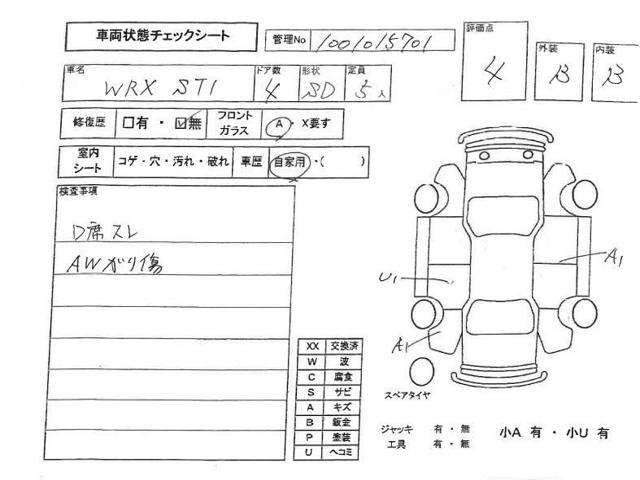 車両状態チェックシート 管理No 1001015701
評価点 4 外装 B 内装 B
車名 WRX STI ドア数 4 形状 SD 定員 5人
修復歴 □有・☑無 フロントガラス A・X要す
室内シート コゲ・穴・汚れ・破れ 車歴 自家用・( )
検査事項
D席スレ
AWがり傷
A1
U1
A1
XX 交換済
W 波
C 腐食
S サビ
A キズ
B 鈑金
P 塗装
U ヘコミ
スペアタイヤ
ジャッキ 有・無
工具 有・無
小A 有・小U 有